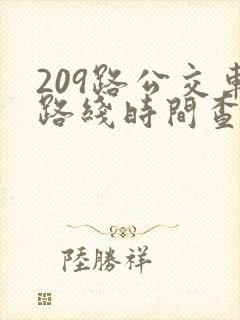 209路公交車
路綫時間查
陸勝祥